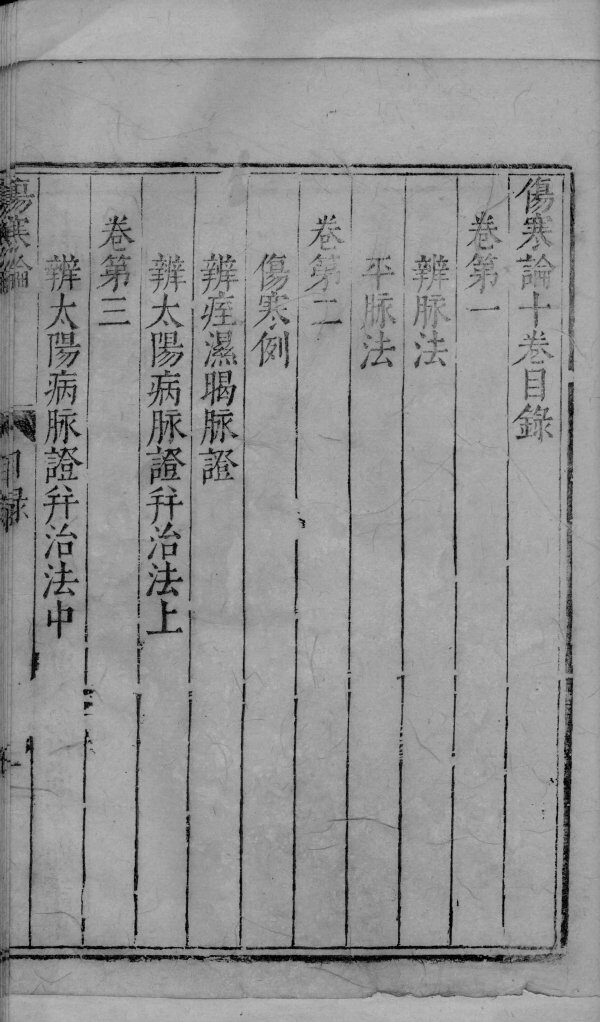 傷寒論十卷目錄
卷第一
辨脉法
平脉法
卷第二
傷寒例
辨痓濕暍脉證
辨太陽病脉證并治法上
卷第三
辨太陽病脉證并治法中
傷寒論
目錄
一